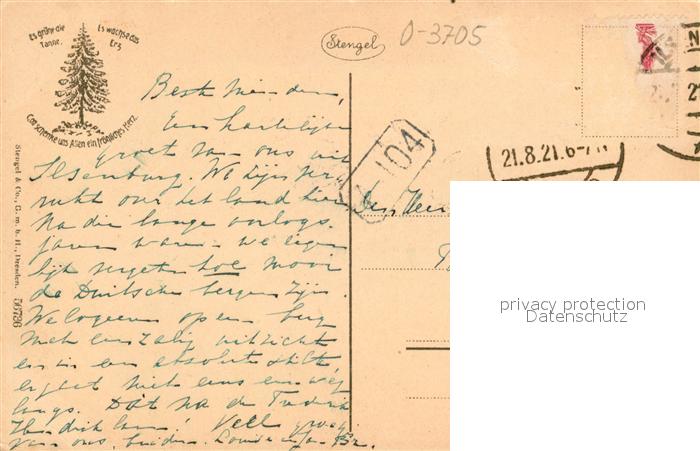 Es grüne die Tanne,
Es wachse das Erz
Gott schenke uns Allen ein fröhliches Herz.
Stengel
0-3705
Stengel & Co., G. m. b. H., Dresden. 56736
104
21.8.21. 6-7
Beste vrienden,
Een hartelijke
groet van ons uit
Ilsenburg. We zijn ver
rukt over het land hier
Na die lange oorlogs
jaren waren we eigen
lijk vergeten hoe mooi
de Duitsche bergen zijn.
We logeeren op een berg
met een zalig uitzicht
en in een absolute stilte
er gaat niet eens een weg
langs. Dat na de Frederik
Hendriklaan! Veel
van ons beiden.
Den Heer
privacy protection
Datenschutz